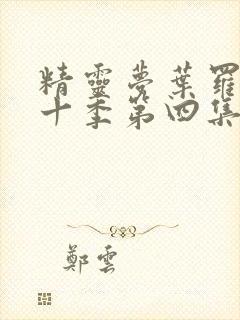 精靈夢葉羅
十季第四集
鄭雲